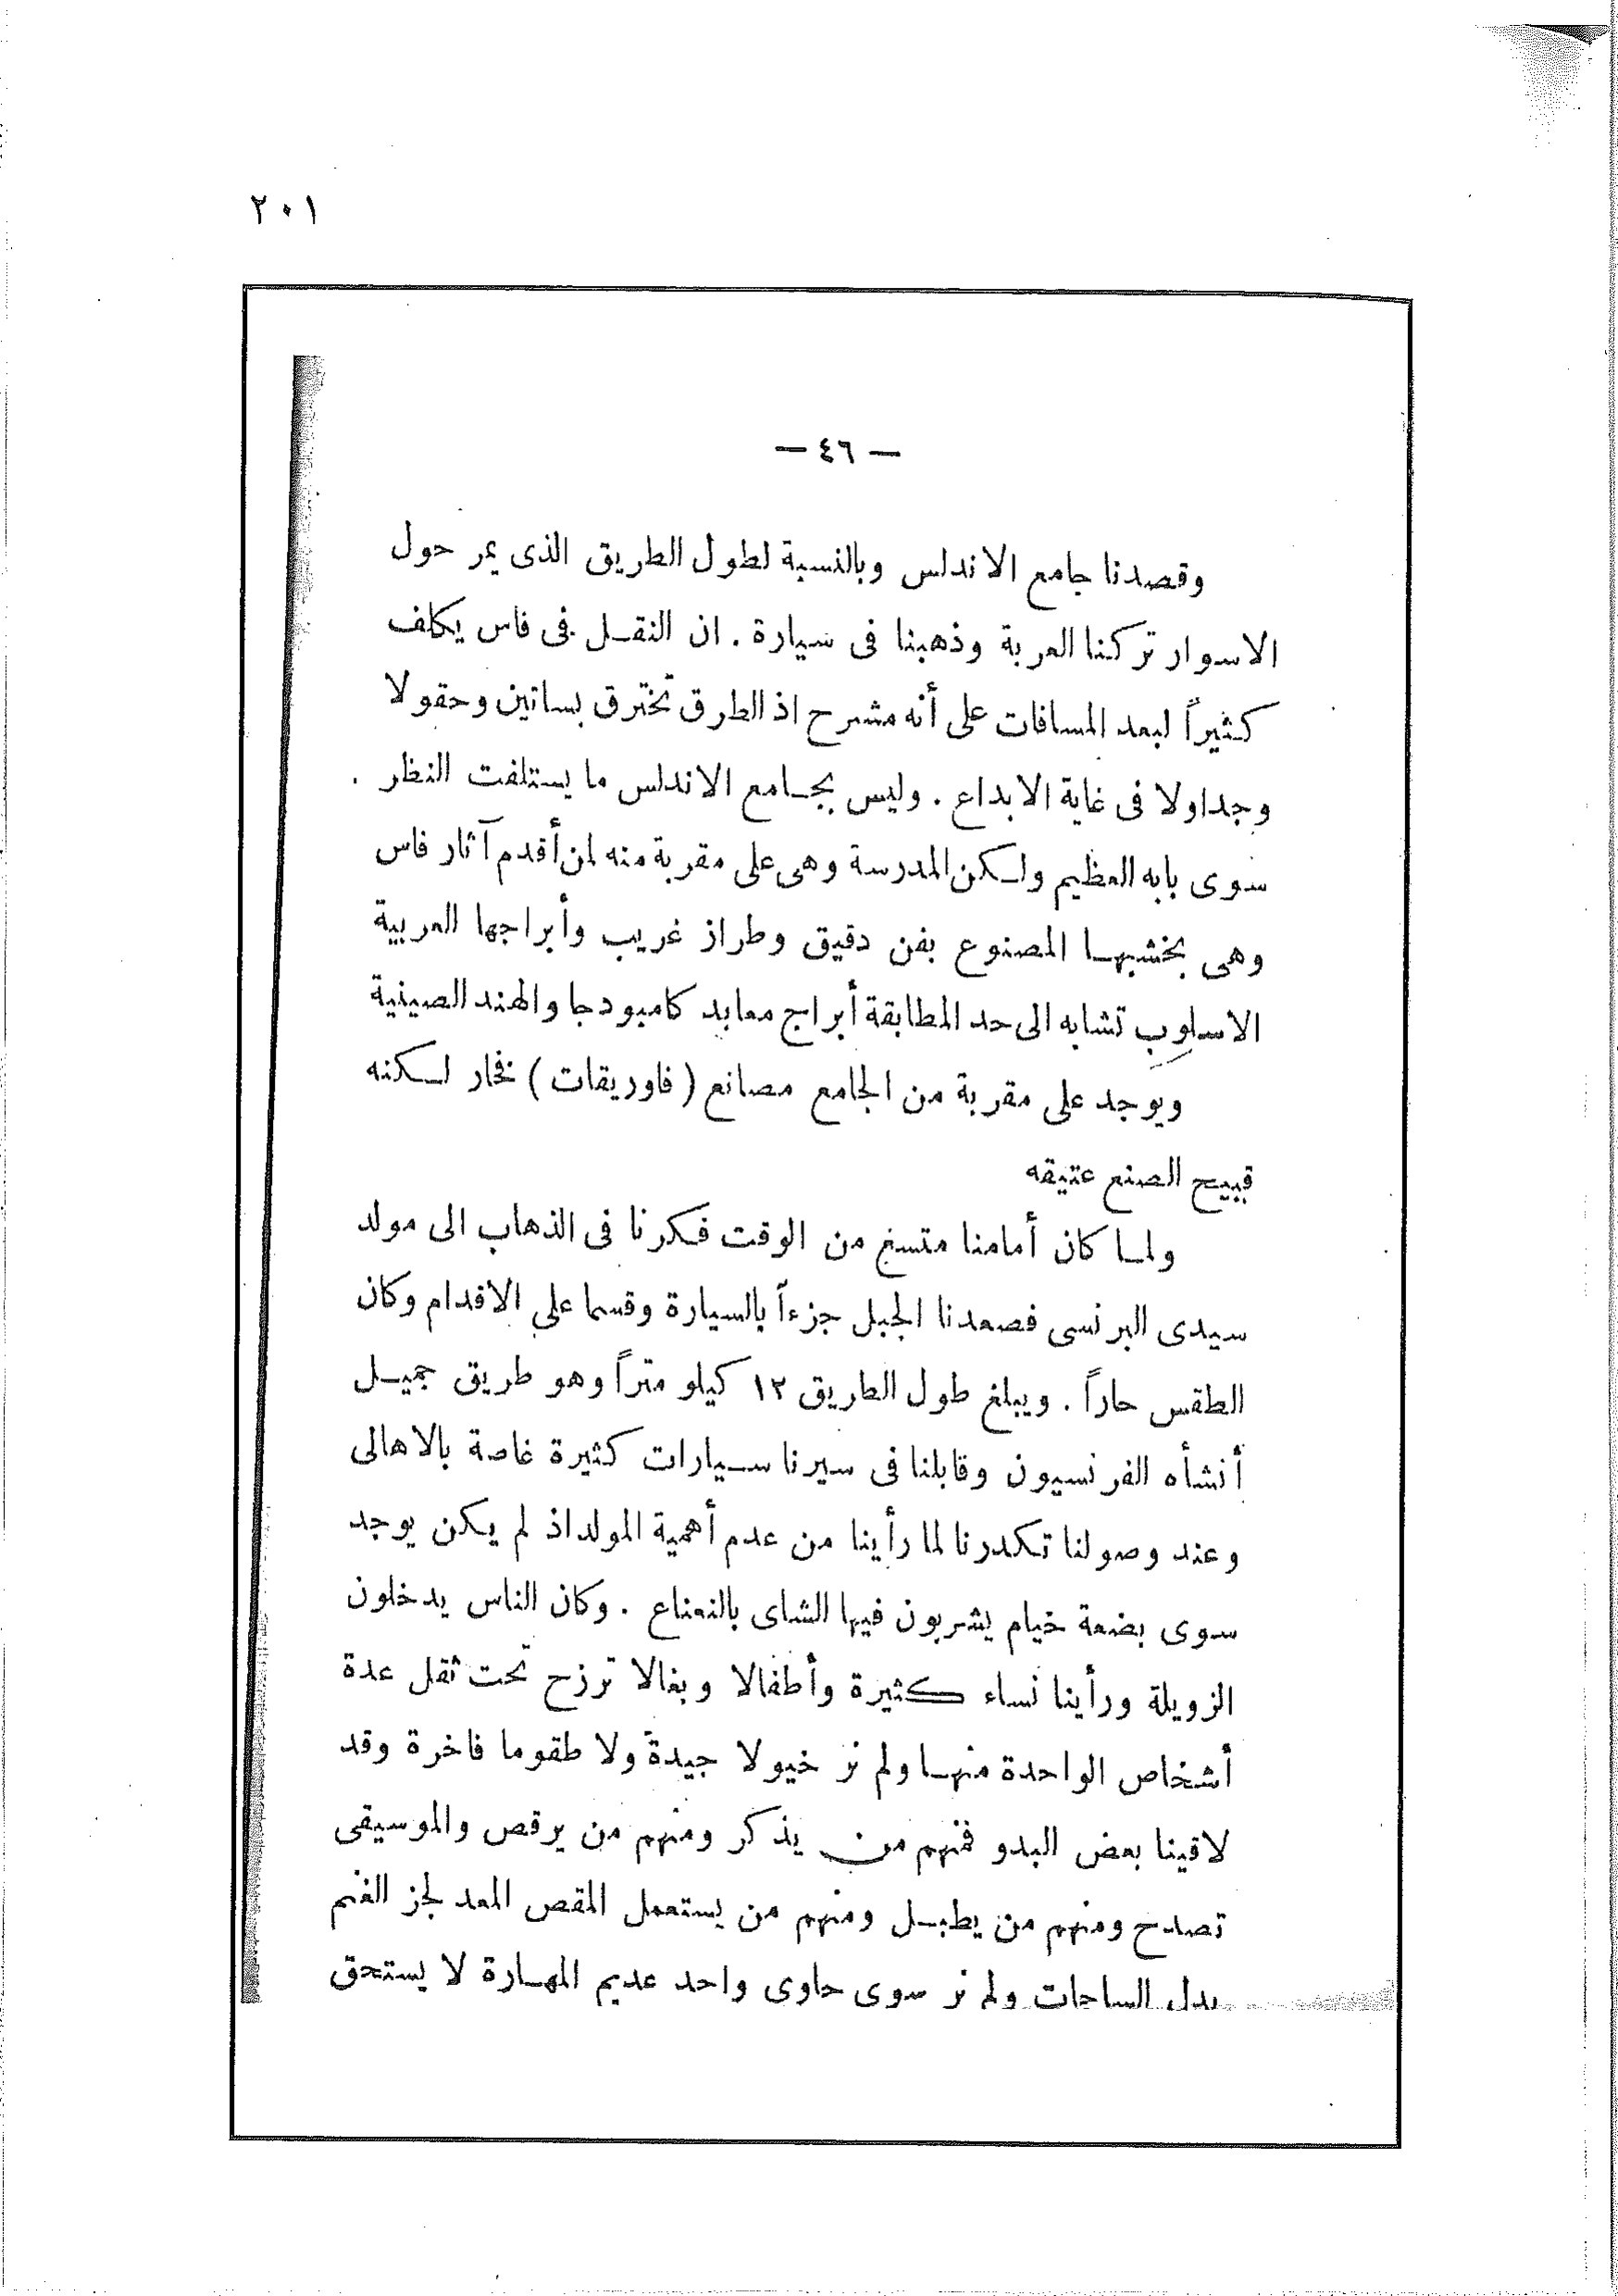 ٢٠١
— ٤٦ —
وقصدنا جامع الاندلس وبالنسبة لطول الطريق الذى يمر حول
الاسوار تركنا العربة وذهبنا فى سيارة . ان النقل فى فاس يكلف
كثيراً لبعد المسافات على أنه مشرح اذ الطرق تخترق بساتين وحقولا
وجداولا فى غاية الابداع . وليس بجامع الاندلس ما يستلفت النظر .
سوى بابه العظيم ولكن المدرسة وهى على مقربة منه لمن أقدم آثار فاس
وهى بخشبها المصنوع بفن دقيق وطراز غريب وأبراجها العربية
الاسلوب تشابه الى حد المطابقة أبراج معابد كامبودجا والهند الصينية
ويوجد على مقربة من الجامع مصانع ( فاوريقات ) نخار لكنه
قبيح الصنع عتيقه
ولما كان أمامنا متسع من الوقت فكرنا فى الذهاب الى مولد
سيدى البرنسى فصعدنا الجبل جزءاً بالسيارة وقسما على الاقدام وكان
الطقس حاراً . ويبلغ طول الطريق ١٢ كيلو متراً وهو طريق جميل
أنشأه الفرنسيون وقابلنا فى سيرنا سيارات كثيرة غاصة بالاهالى
وعند وصولنا تكدرنا لما رأينا من عدم أهمية المولد اذ لم يكن يوجد
سوى بضعة خيام يشربون فيها الشاى بالنعناع . وكان الناس يدخلون
الزويلة ورأينا نساء كثيرة وأطفالا وبغالا ترزح تحت ثقل عدة
أشخاص الواحدة منها ولم نر خيولا جيدة ولا طقوما فاخرة وقد
لاقينا بعض البدو فمنهم من يذكر ومنهم من يرقص والموسيقى
تصدح ومنهم من يطبل ومنهم من يستعمل المقص المعد لجز الغنم
بدل الساجات ولم نر سوى حاوى واحد عديم المهارة لا يستحق